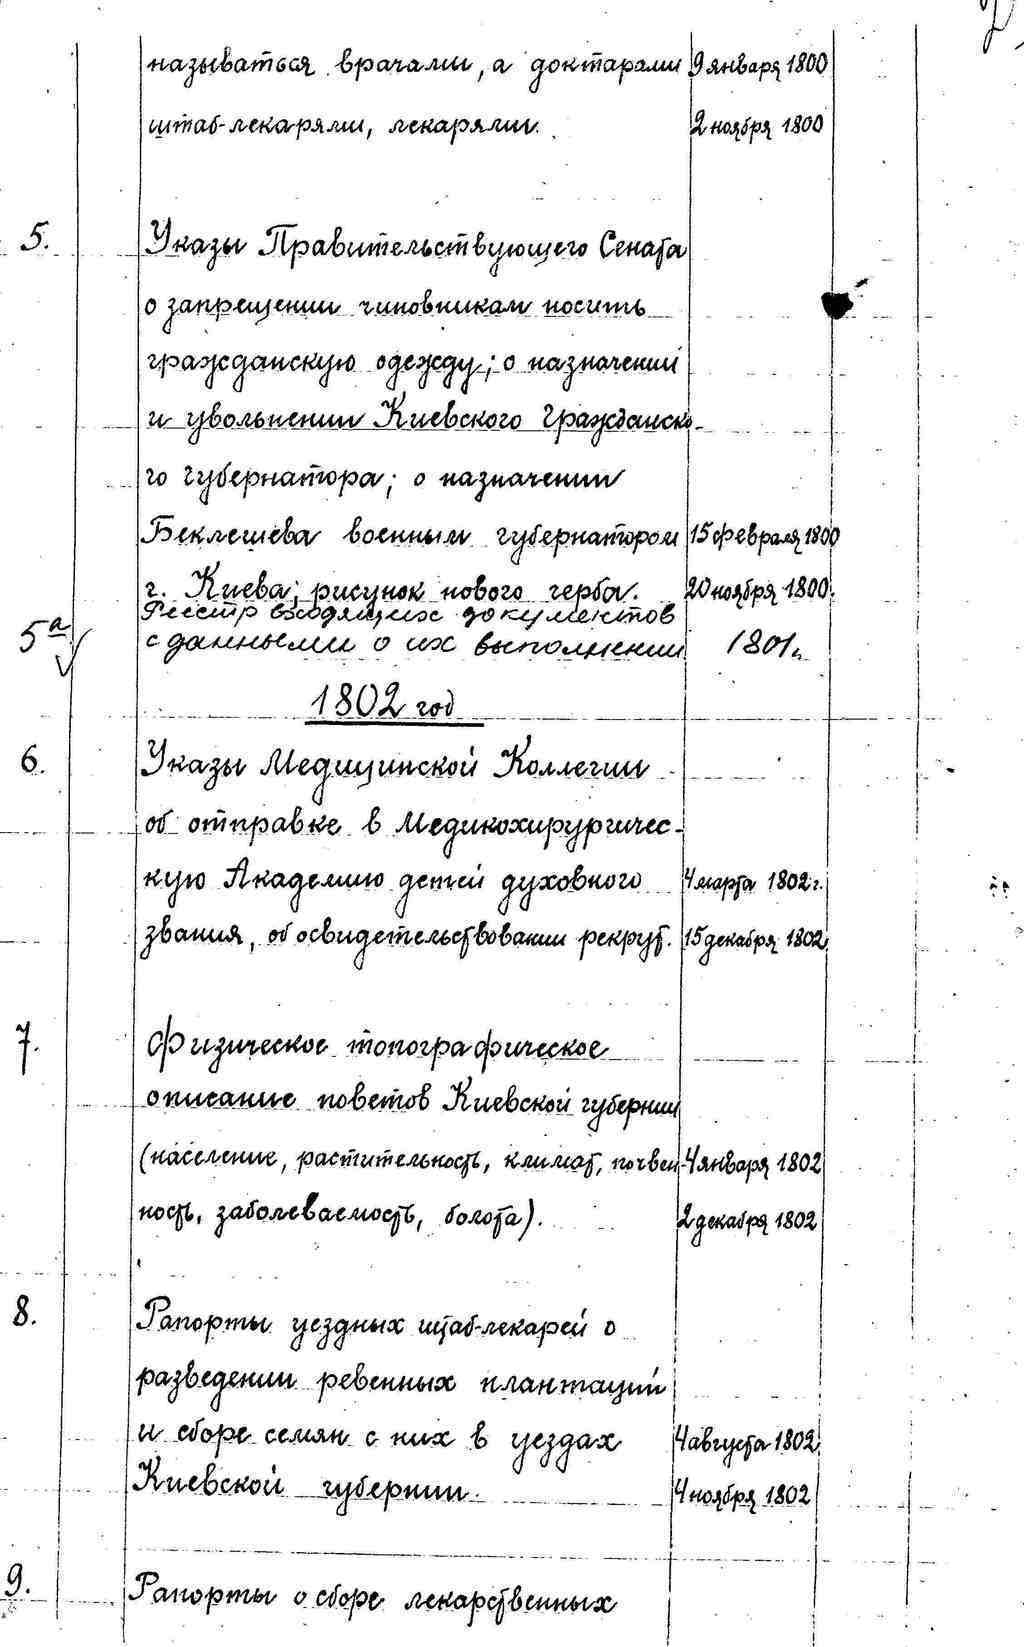 называться врачами, а доктарами 9 января 1800
штаб-лекарями, лекарями. 2 ноября 1800
5. Указы Правительствующего Сената
о запрещении чиновникам носить
гражданскую одежду; о назначении
и увольнении Киевского Гражданско-
го губернатора; о назначении
Беклешева военным губернатором 15 февраля 1800
г. Киева; рисунок нового герба. 20 ноября 1800.
Реестр входящих документов
5а с данными о их выполнении 1801г.
1802 год
6. Указы Медицинской Коллегии
об отправке в Медикохирургичес-
кую Академию детей духовного 4 марта 1802 г.
звания, об освидетельствовании рекрут. 15 декабря 1802
7. Физическое топографическое
описание поветов Киевской губернии
(население, растительность, климат, почвен- 4 января 1802
ность, заболеваемость, болота). 2 декабря 1802
8. Рапорты уездных штаб-лекарей о
разведении ревенных плантаций
и сборе семян с них в уездах 4 августа 1802
Киевской губернии. 4 ноября 1802
9. Рапорты о сборе лекарственных